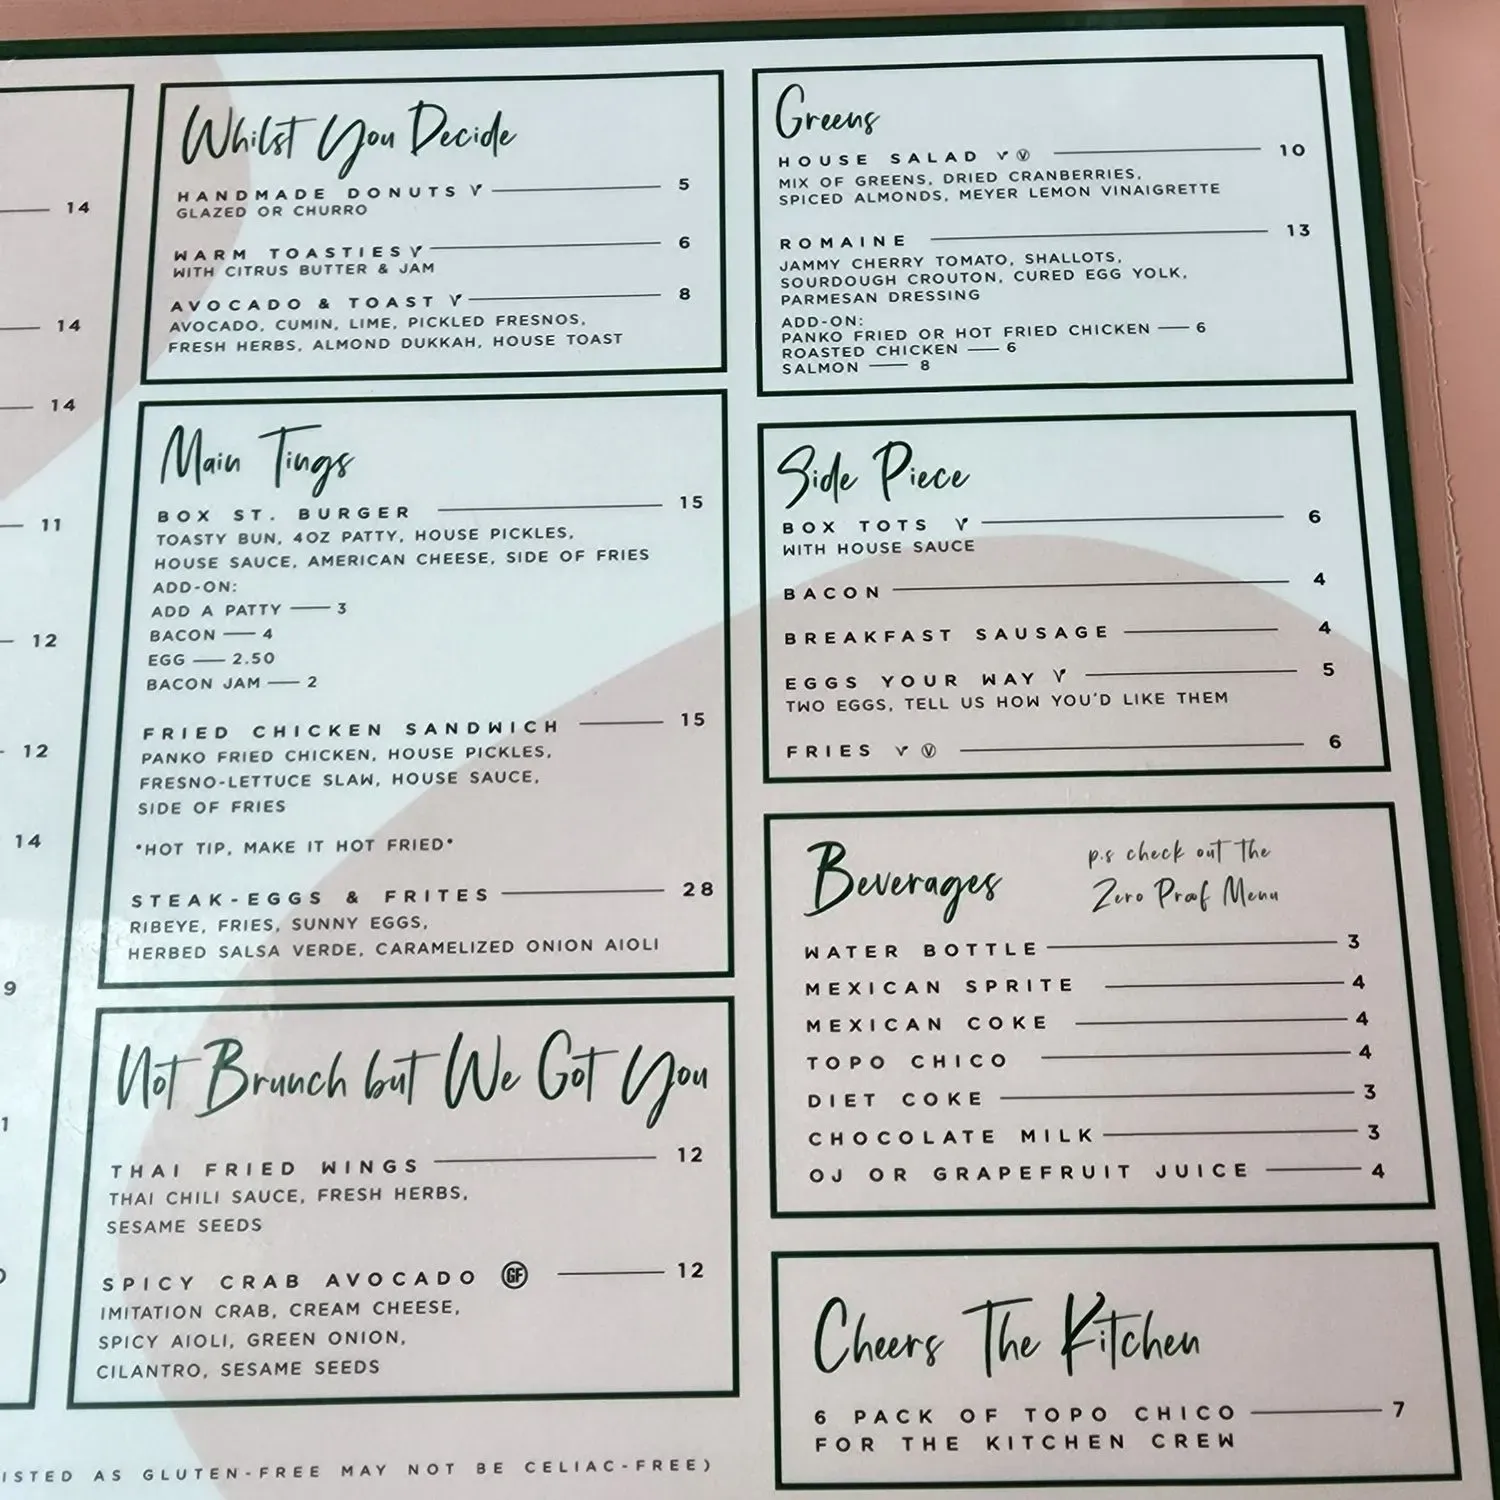 14
14
14
11
12
12
14
9
1
Whilst You Decide
HANDMADE DONUTS V 5
GLAZED OR CHURRO
WARM TOASTIES V 6
WITH CITRUS BUTTER & JAM
AVOCADO & TOAST V 8
AVOCADO, CUMIN, LIME, PICKLED FRESNOS,
FRESH HERBS, ALMOND DUKKAH, HOUSE TOAST
Main Tings
BOX ST. BURGER 15
TOASTY BUN, 4OZ PATTY, HOUSE PICKLES,
HOUSE SAUCE, AMERICAN CHEESE, SIDE OF FRIES
ADD-ON:
ADD A PATTY — 3
BACON — 4
EGG — 2.50
BACON JAM — 2
FRIED CHICKEN SANDWICH 15
PANKO FRIED CHICKEN, HOUSE PICKLES,
FRESNO-LETTUCE SLAW, HOUSE SAUCE,
SIDE OF FRIES
*HOT TIP, MAKE IT HOT FRIED*
STEAK-EGGS & FRITES 28
RIBEYE, FRIES, SUNNY EGGS,
HERBED SALSA VERDE, CARAMELIZED ONION AIOLI
Not Brunch but We Got You
THAI FRIED WINGS 12
THAI CHILI SAUCE, FRESH HERBS,
SESAME SEEDS
SPICY CRAB AVOCADO GF 12
IMITATION CRAB, CREAM CHEESE,
SPICY AIOLI, GREEN ONION,
CILANTRO, SESAME SEEDS
ISTED AS GLUTEN-FREE MAY NOT BE CELIAC-FREE)
Greens
HOUSE SALAD V V 10
MIX OF GREENS, DRIED CRANBERRIES,
SPICED ALMONDS, MEYER LEMON VINAIGRETTE
ROMAINE 13
JAMMY CHERRY TOMATO, SHALLOTS,
SOURDOUGH CROUTON, CURED EGG YOLK,
PARMESAN DRESSING
ADD-ON:
PANKO FRIED OR HOT FRIED CHICKEN — 6
ROASTED CHICKEN — 6
SALMON — 8
Side Piece
BOX TOTS V 6
WITH HOUSE SAUCE
BACON 4
BREAKFAST SAUSAGE 4
EGGS YOUR WAY V 5
TWO EGGS, TELL US HOW YOU'D LIKE THEM
FRIES V V 6
Beverages
p.s check out the
Zero Proof Menu
WATER BOTTLE 3
MEXICAN SPRITE 4
MEXICAN COKE 4
TOPO CHICO 4
DIET COKE 3
CHOCOLATE MILK 3
OJ OR GRAPEFRUIT JUICE 4
Cheers The Kitchen
6 PACK OF TOPO CHICO 7
FOR THE KITCHEN CREW